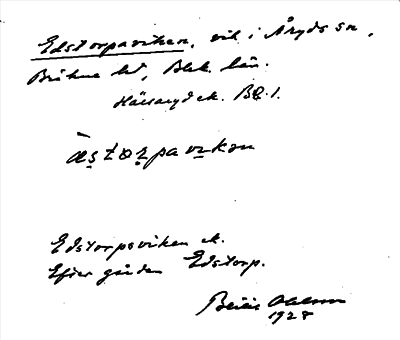 Edstorpaviken, vik i Åryds sn,
Bräkne hd, Blek. län.
Hällaryd ek. BQ.1.
æstorpavikən
Edstorpsviken ek.
Efter gården Edstorp.
1928